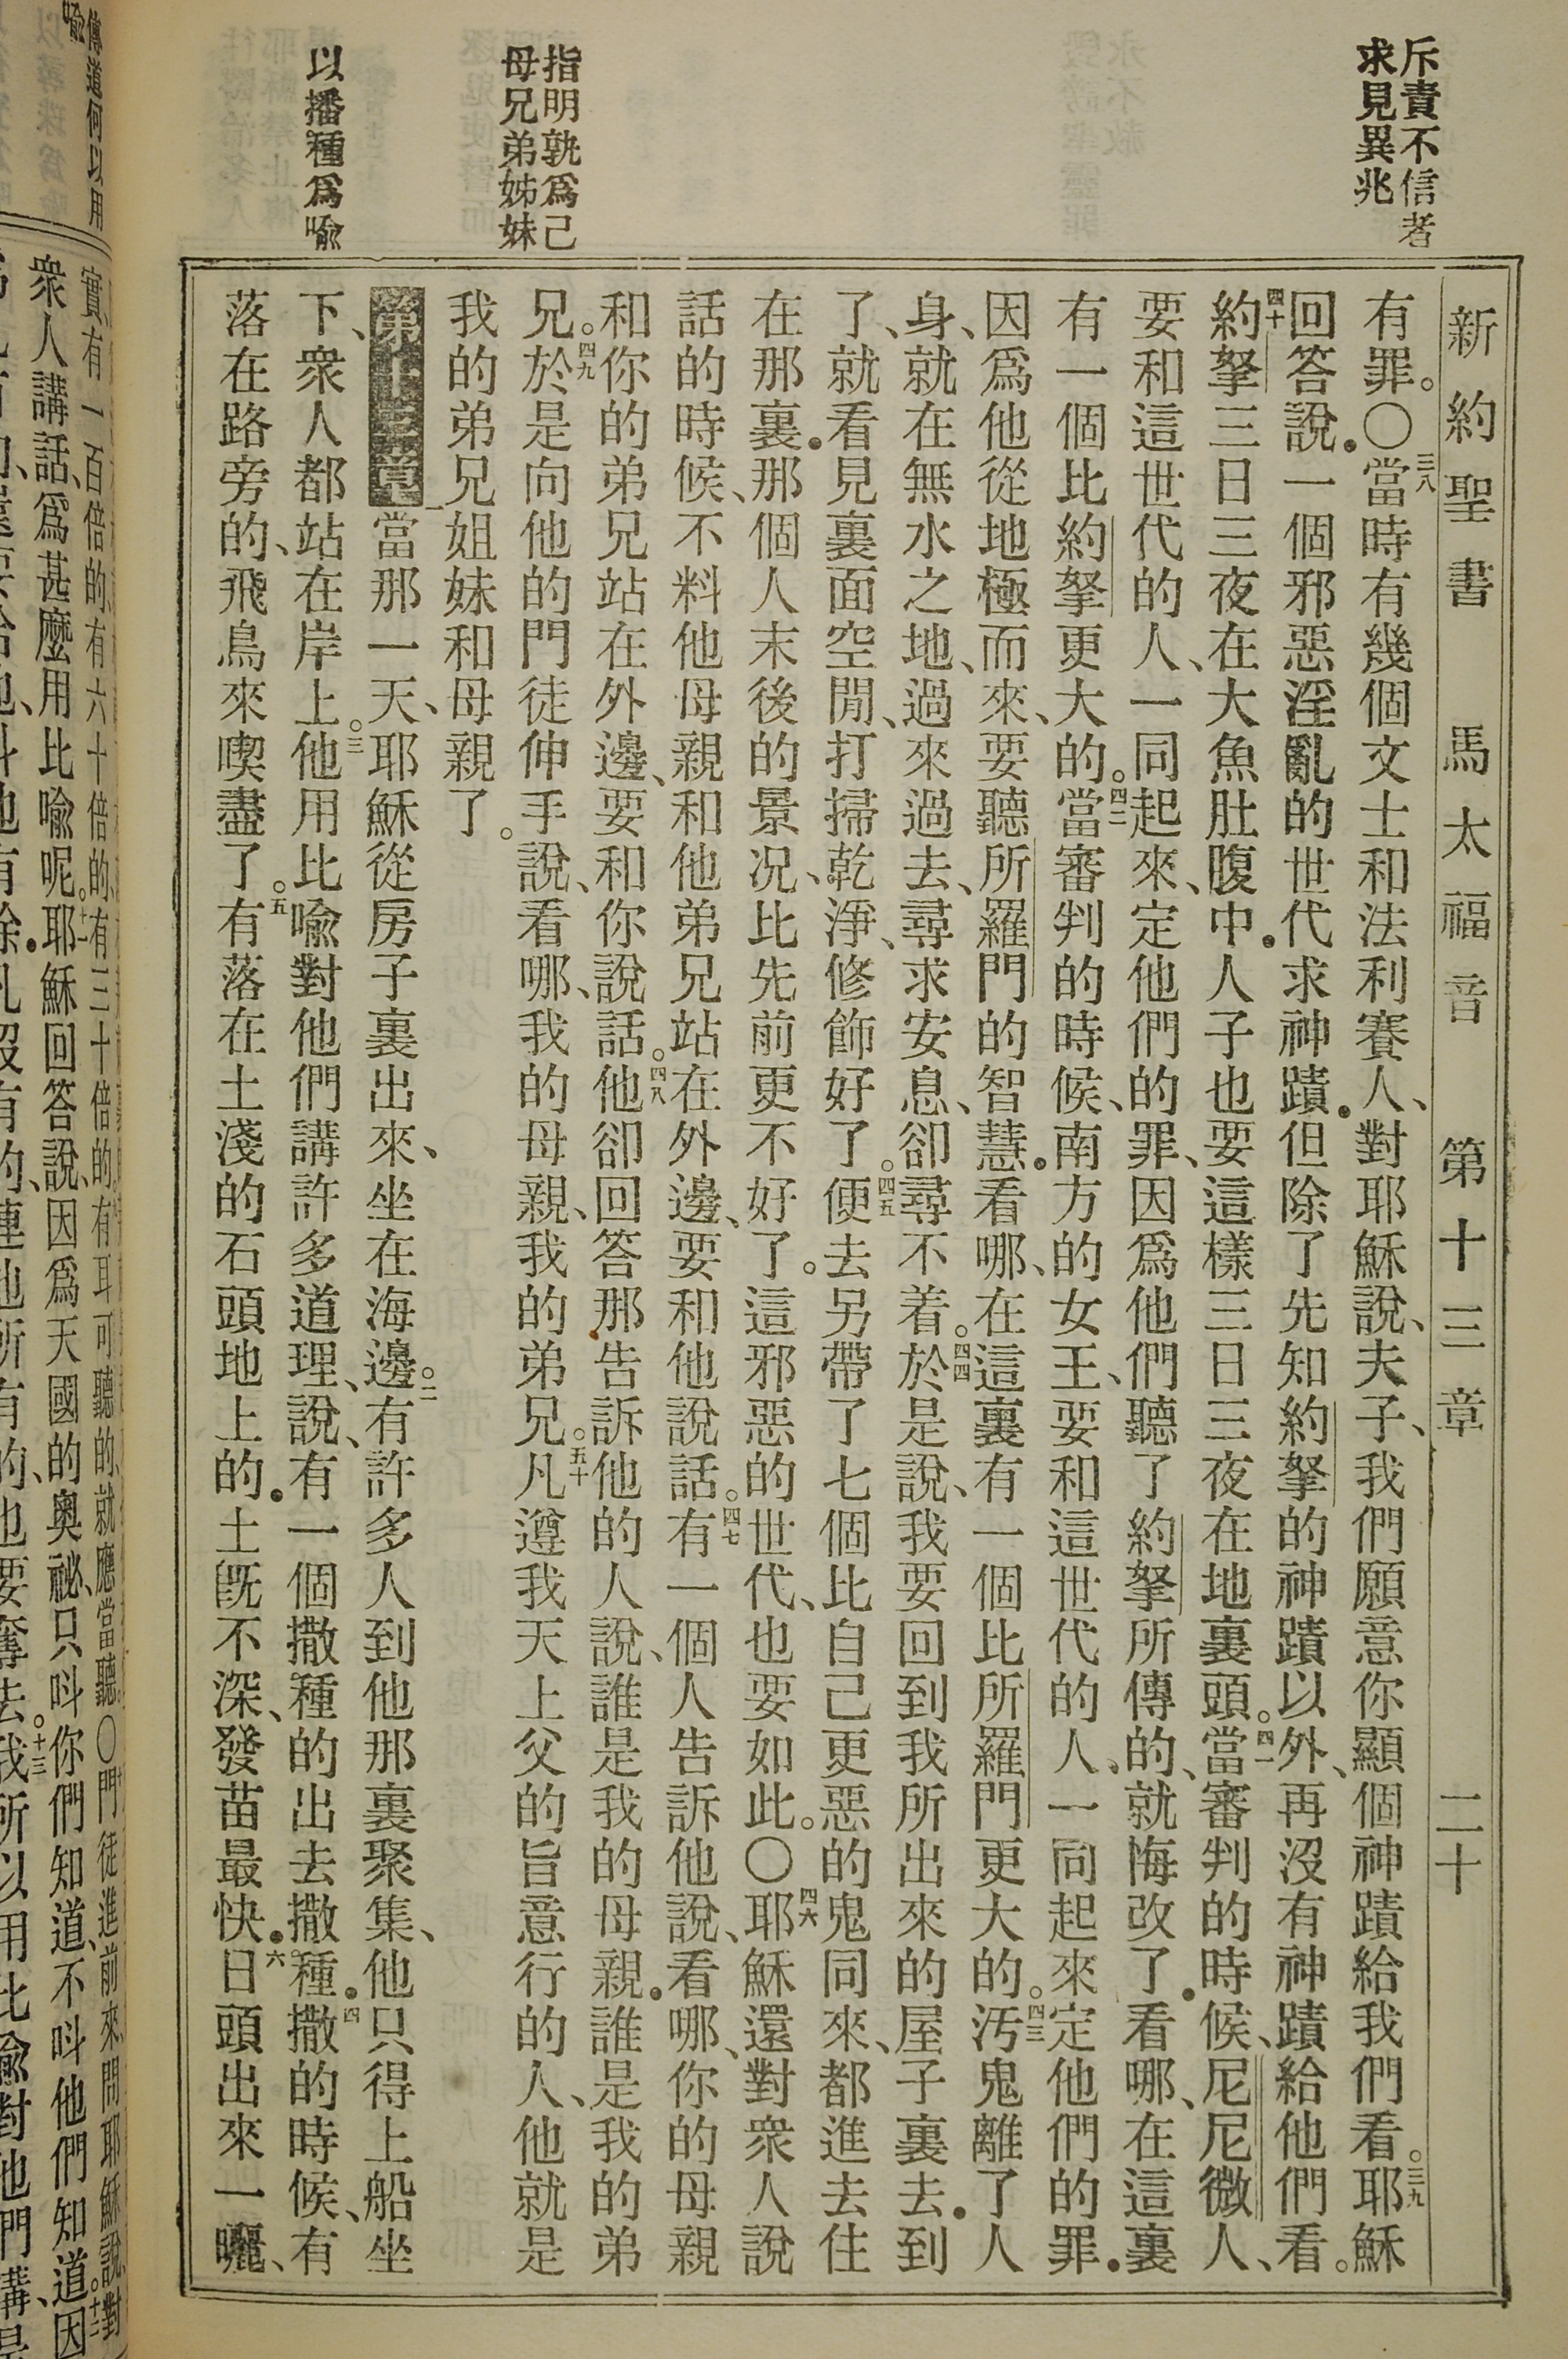 斥責不信者
求見異兆
指明孰爲己
母兄弟姊妹
以播種爲喩
新約聖書 馬太福音 第十三章 二十
有罪。〇三八當時有幾個文士和法利賽人、對耶穌說、夫子、我們願意你顯個神蹟給我們看。三九耶穌
回答說．一個邪惡淫亂的世代求神蹟．但除了先知約拏的神蹟以外、再沒有神蹟給他們看。
四十約拏三日三夜在大魚肚腹中．人子也要這樣三日三夜在地裏頭。四一當審判的時候、尼尼微人、
要和這世代的人、一同起來、定他們的罪、因爲他們聽了約拏所傳的、就悔改了．看哪、在這裏
有一個比約拏更大的。四二當審判的時候、南方的女王、要和這世代的人、一同起來定他們的罪．
因爲他從地極而來、要聽所羅門的智慧．看哪、在這裏有一個比所羅門更大的。四三汚鬼離了人
身、就在無水之地、過來過去、尋求安息、卻尋不着。四四於是說、我要回到我所出來的屋子裏去．到
了、就看見裏面空閒、打掃乾淨、修飾好了。四五便去另帶了七個比自己更惡的鬼同來、都進去住
在那裏．那個人末後的景况、比先前更不好了。這邪惡的世代、也要如此。〇四六耶穌還對衆人說
話的時候、不料他母親和他弟兄站在外邊、要和他說話。四七有一個人告訴他說、看哪、你的母親
和你的弟兄站在外邊、要和你說話。四八他卻回答那告訴他的人說、誰是我的母親．誰是我的弟
兄。四九於是向他的門徒伸手說、看哪、我的母親、我的弟兄。五十凡遵我天上父的旨意行的人、他就是
我的弟兄姐妹和母親了。
第十三章一當那一天、耶穌從房子裏出來、坐在海邊。二有許多人到他那裏聚集、他只得上船坐
下、衆人都站在岸上。三他用比喩對他們講許多道理、說、有一個撒種的出去撒種．四撒的時候、有
落在路旁的、飛鳥來喫盡了。五有落在土淺的石頭地上的．土旣不深、發苗最快．六日頭出來一曬、
傳道何以用
喩
實有一百倍的、有六十倍的、有三十倍的。有耳可聽的、就應當聽。〇十門徒進前來、問耶穌說、對
衆人講話、爲甚麼用比喩呢。十一耶穌回答說、因爲天國的奧祕、只呌你們知道、不呌他們知道。十二因